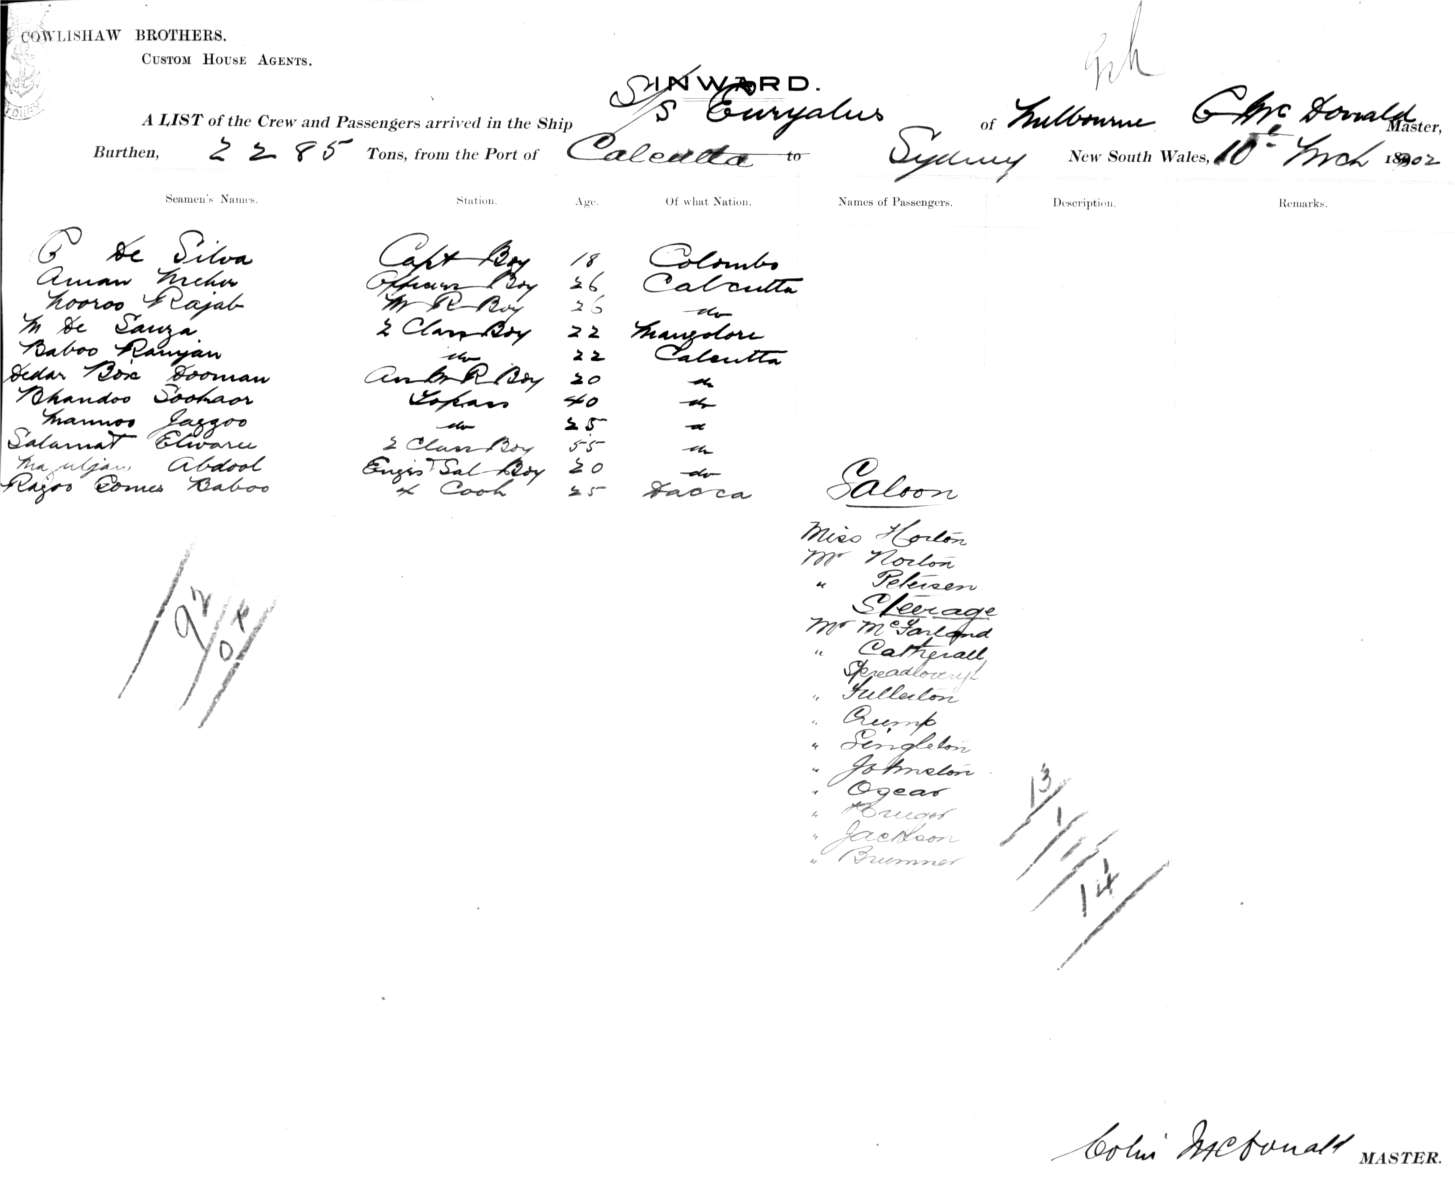 COWLISHAW BROTHERS.
CUSTOM HOUSE AGENTS.
INWARD.
A LIST of the Crew and Passengers arrived in the Ship S/S Euryalus of Melbourne C McDonald Master,
Burthen, 2285 Tons, from the Port of Calcutta to Sydney New South Wales, 10th Mrch 1902
Seamen's Names. Station. Age. Of what Nation. Names of Passengers. Description. Remarks.
P De Silva Capt Boy 18 Colombo
Aman Boy 26 Calcutta
Nooroo Rajab M R Boy 26 do
M De Sauza 2 Class Boy 22 Mangalore
Baboo Ramjan do 22 Calcutta
Dedar Box Dooman M R Boy 20 do
Bhandoo Soohaor Topass 40 do
Mannoo Jaggoo do 25 do
Salamat 2 Class Boy 55 do
Abdool Engrs Sal Boy 20 do
Baboo Cook 25 Dacca
Saloon
Miss Horton
Mr Norton
" Petersen
Steerage
Mr McFarland
" Catherall
" Fullerton
" Crump
" Singleton
" Johnston
" Ogear
" Kruger
" Jackson
" Brummer
92
04
13
1
14
Colin McDonald MASTER.